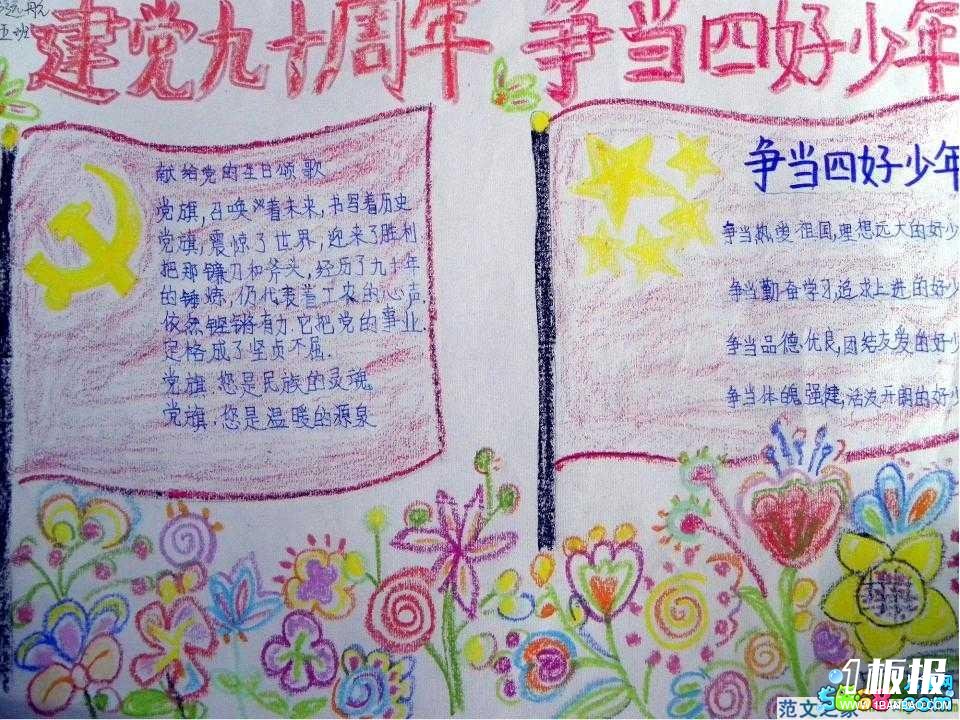 远航
五班
建党九十周年 争当四好少年
献给党的生日颂歌
党旗,召唤着未来,书写着历史
党旗,震惊了世界,迎来了胜利
把那镰刀和斧头,经历了九十年
的锤炼,仍代表着工农的心声.
依然铿锵有力.它把党的事业.
定格成了坚贞不屈.
党旗.您是民族的灵魂
党旗.您是温暖的源泉
争当四好少年
争当热爱祖国,理想远大的好少
争当勤奋学习,追求上进的好少
争当品德优良,团结友爱的好少
争当体魄强健,活泼开朗的好少
范文之家
板报网
WWW.1BANBAO.COM